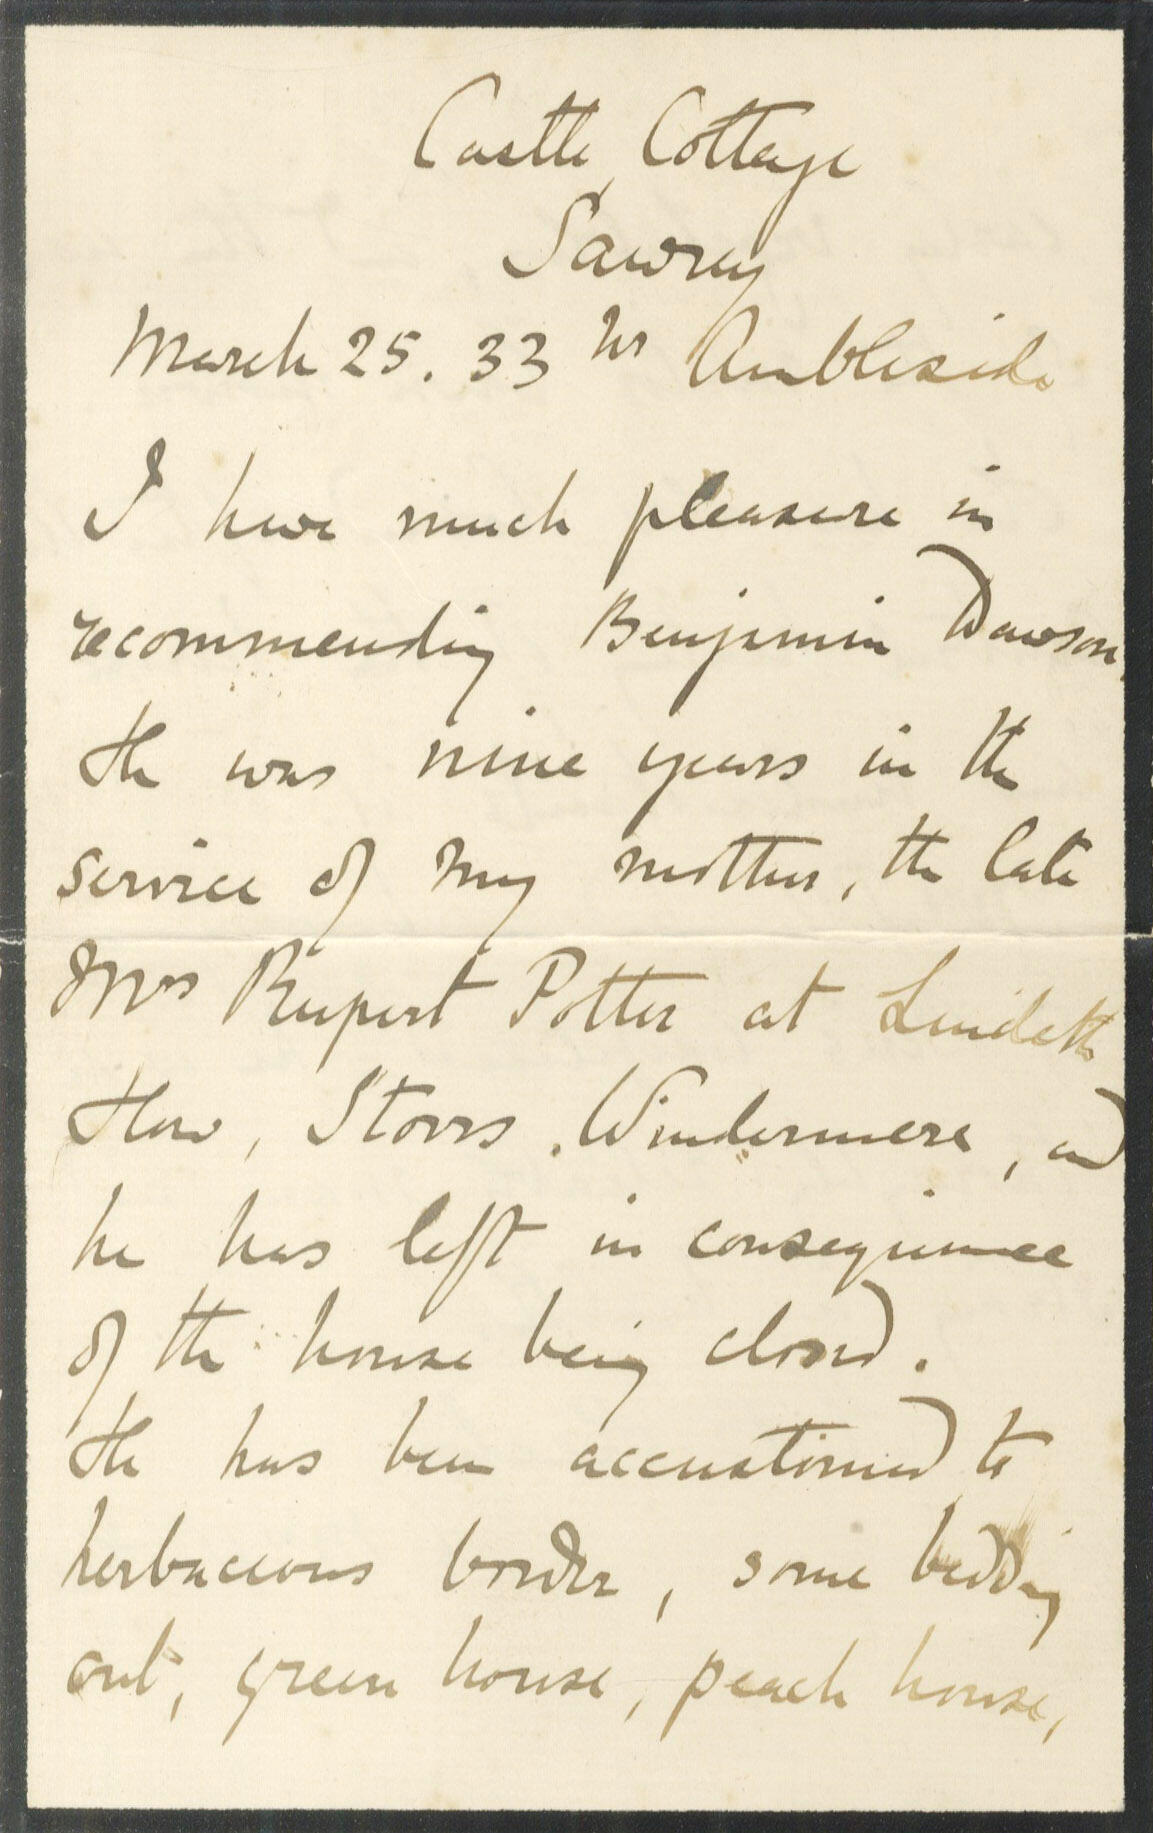 Castle Cottage
Sawrey
March 25. 33 nr Ambleside
I have much pleasure in
recommending Benjamin Dawson.
He was nine years in the
service of my mother, the late
Mrs Rupert Potter at Lindeth
How, Storrs. Windermere, and
he has left in consequence
of the house being closed.
He has been accustomed to
herbaceous border, some bedding
out, green house, peach house,